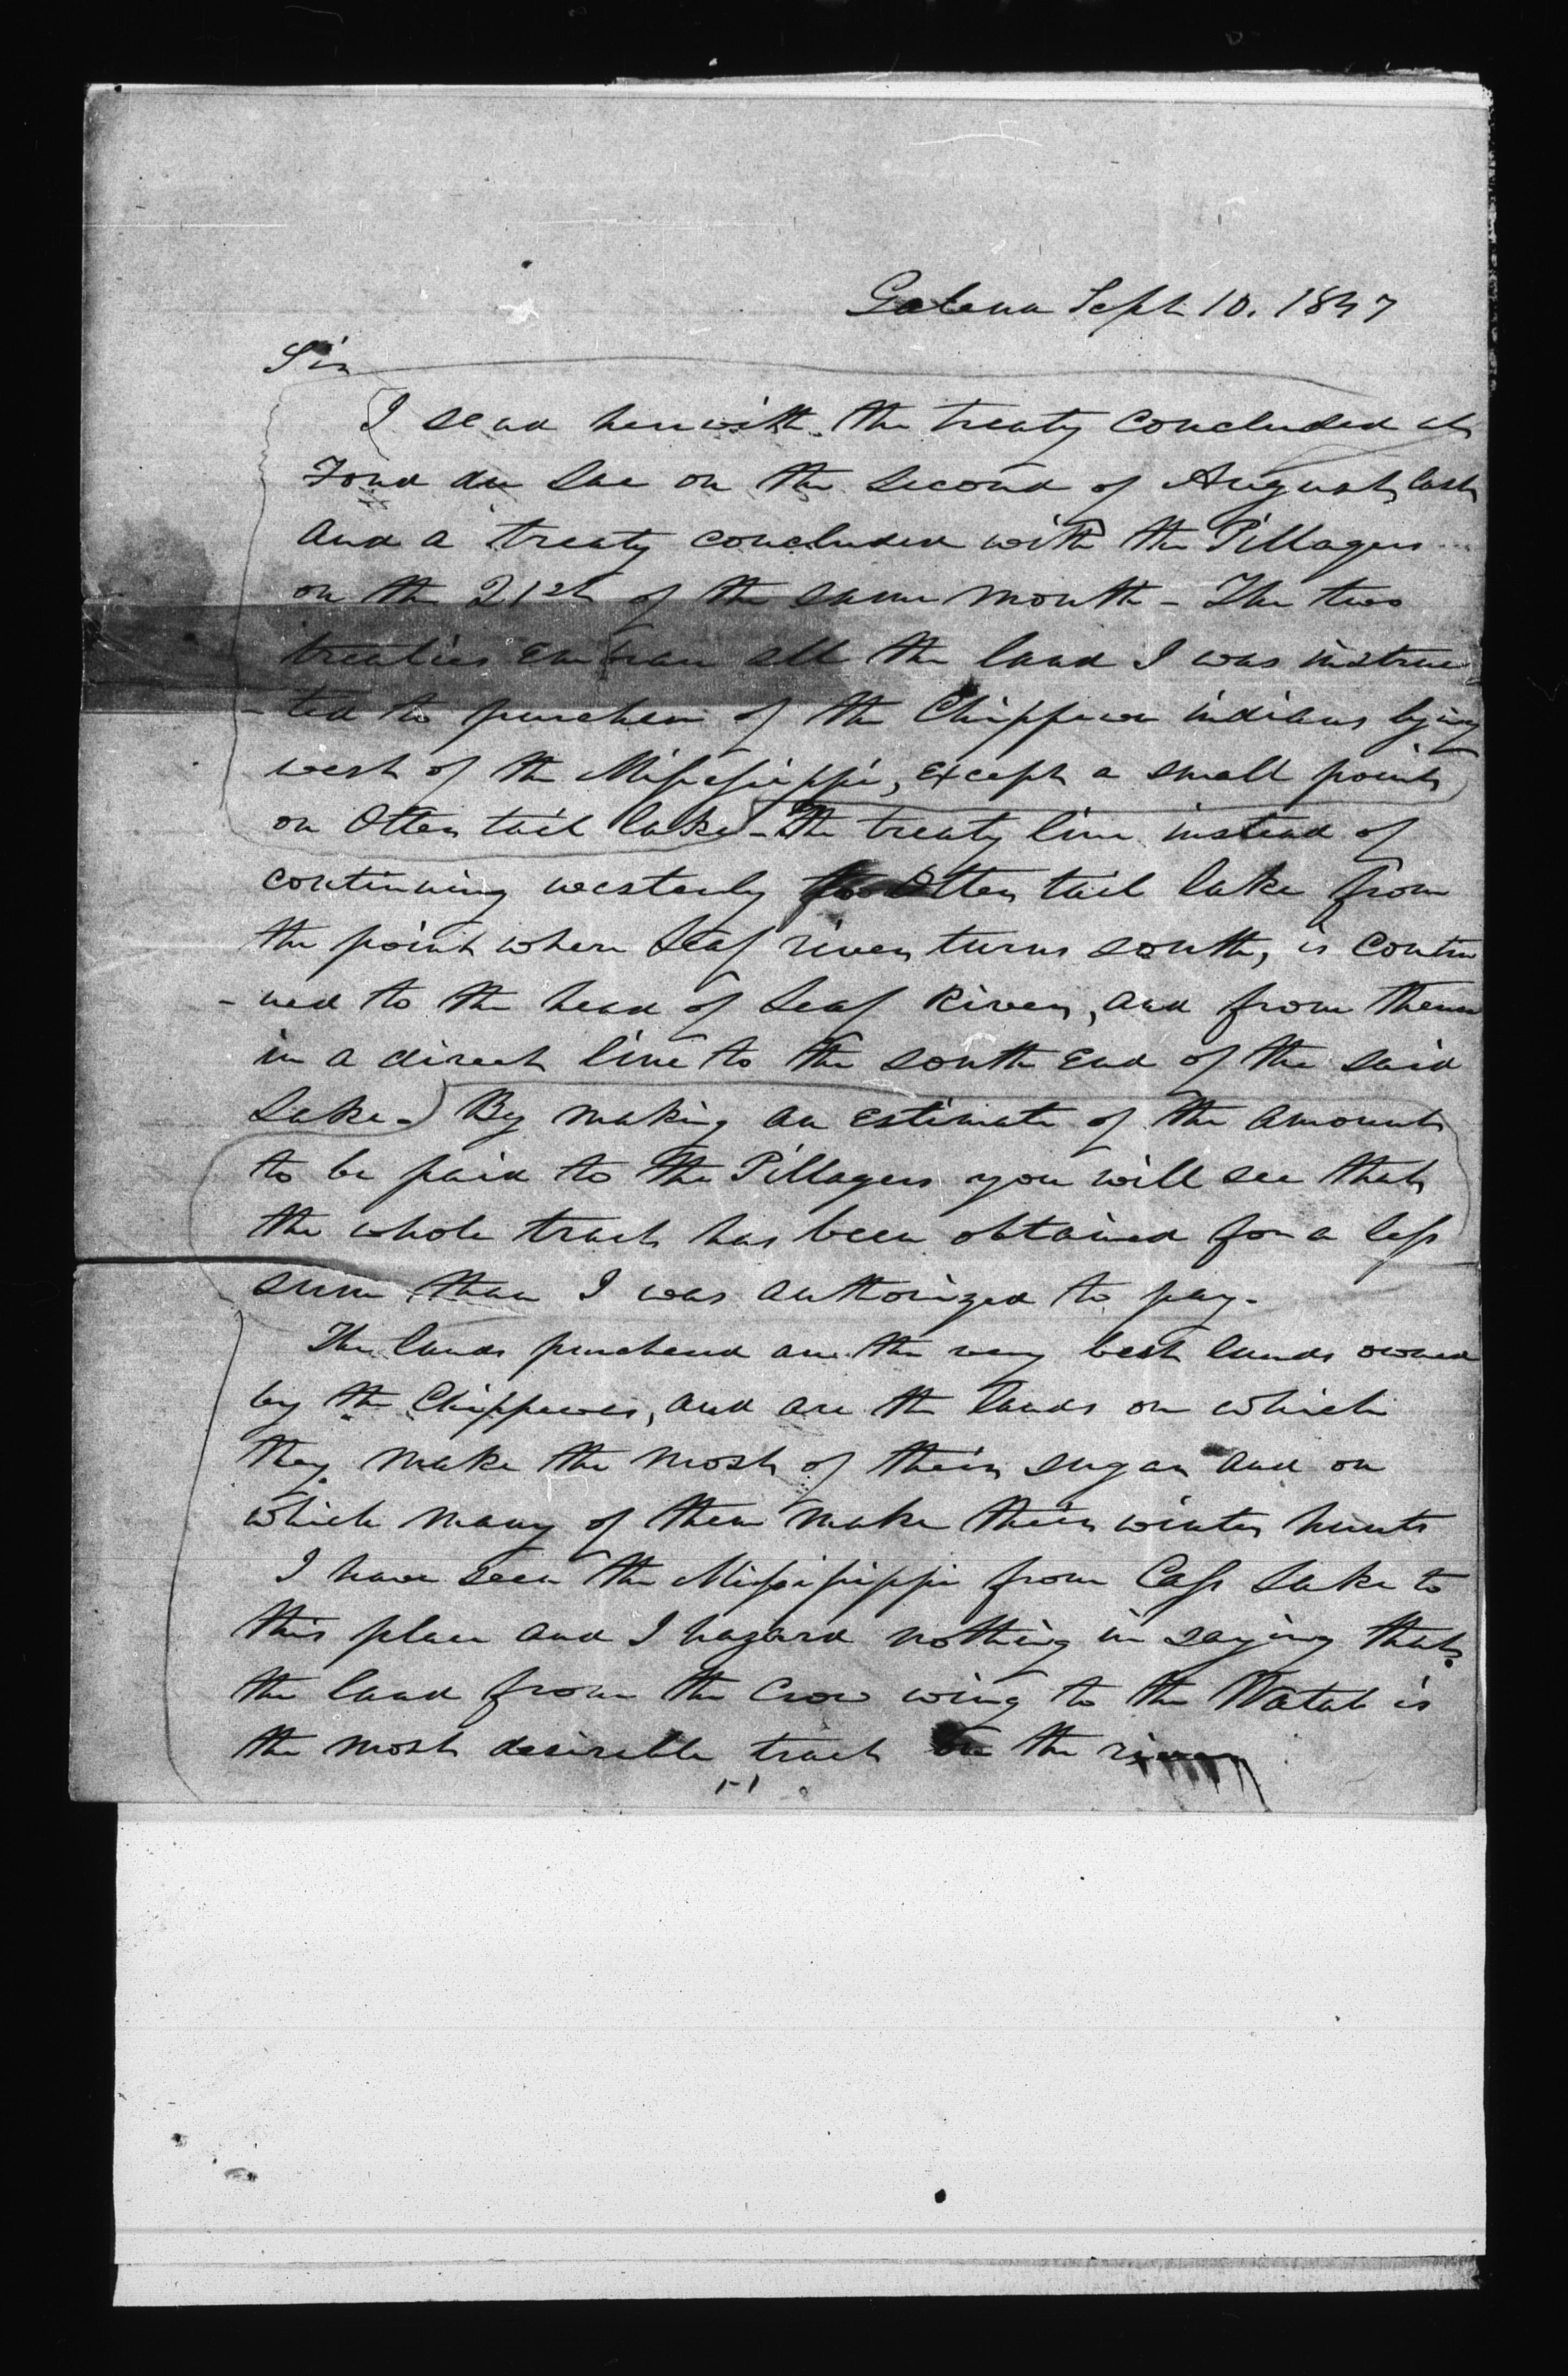 Galena Sept 10. 1847
Sir
I send herewith the treaty concluded at
Fond du Lac on the second of August last
and a treaty concluded with the Pillagers
on the 21st of the same month - The two
treaties embrace all the land I was instruc
-ted to purchase of the Chippewa indians lying
west of the Mississippi, except a small point
on Otter tail lake - The treaty line instead of
continuing westerly to Otter tail lake from
the point where Leaf river turns south, is contin
-ued to the head of Leaf River, and from thence
in a direct line to the south End of the said
Lake - By making an estimate of the amount
to be paid to the Pillagers you will see that
the whole tract has been obtained for a less
sum than I was authorized to pay -
The lands purchased are the very best lands owned
by the Chippewas, and are the lands on which
they make the most of their sugar and on
which many of them make their winter hunts
I have seen the Mississippi from Cass Lake to
this place and I hazard nothing in saying that
the land from the Crow wing to the Watab is
the most desirable tract on the river